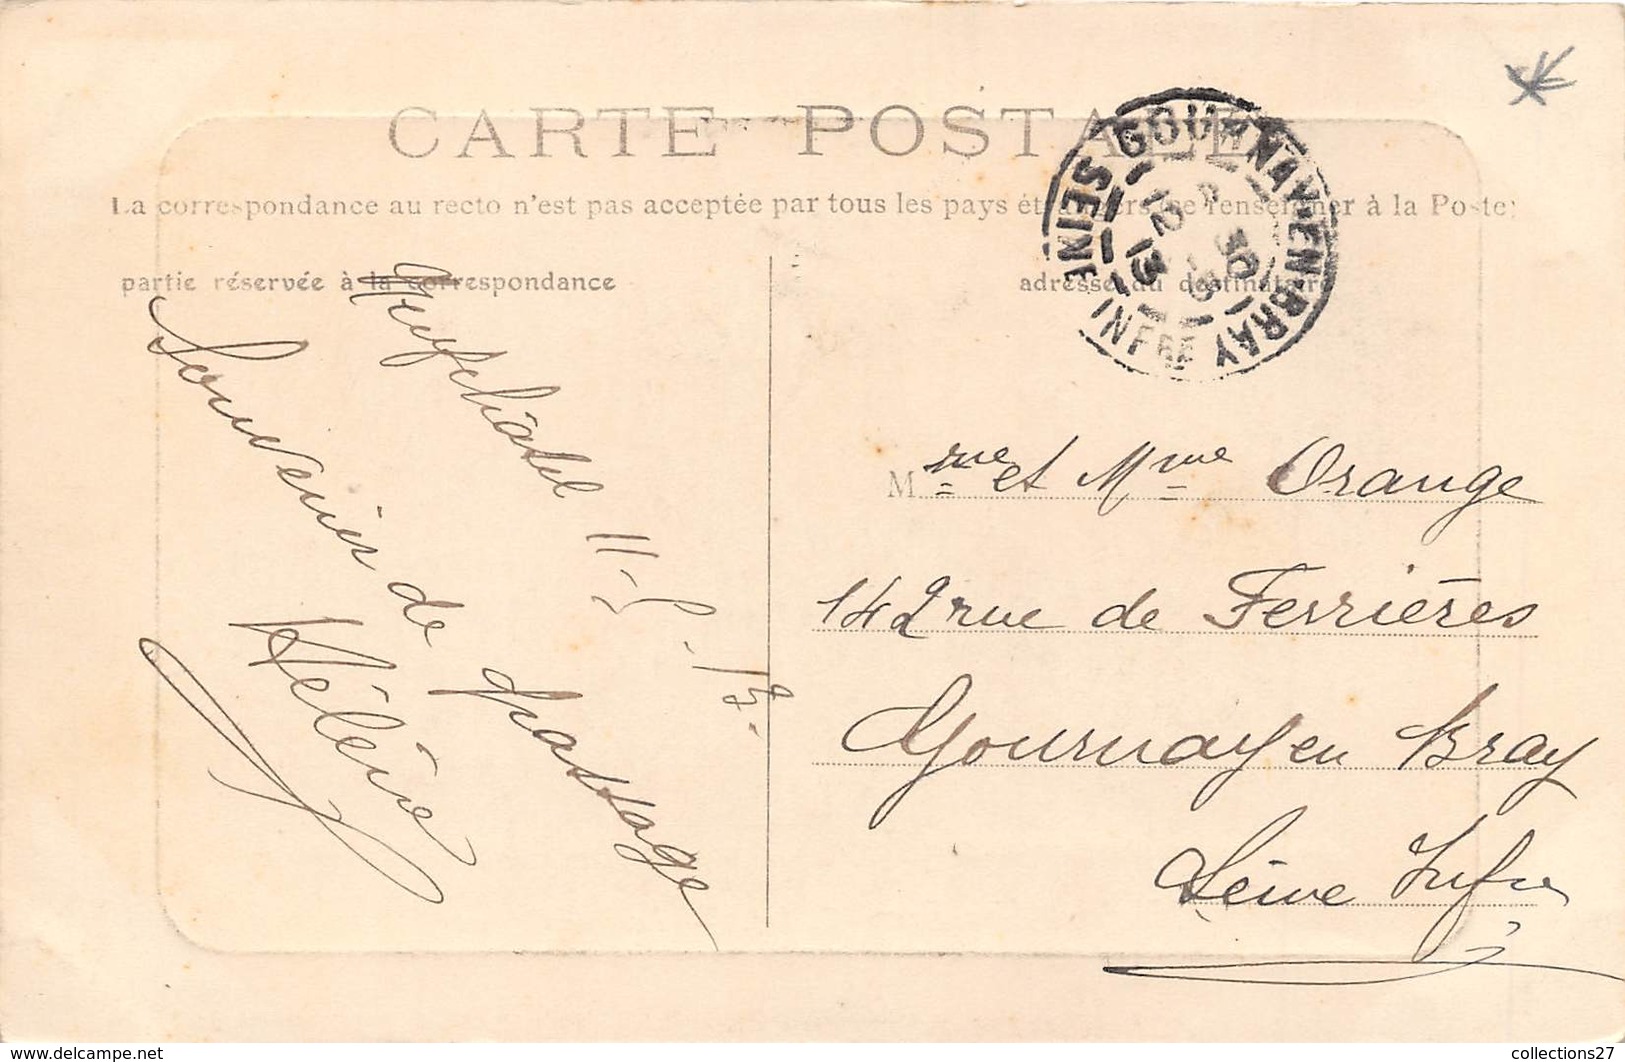 CARTE POSTALE
La correspondance au recto n'est pas acceptée par tous les pays étrangers (se renseigner à la Poste)
partie réservée à la correspondance
adresse du destinataire
GOURNAY-EN-BRAY
SEINE INFRE
12
13
Neufchâtel 11-5-13.
Souvenir de passage
Hélène
M
et Mme Orange
142 rue de Ferrières
Gournay en Bray
Seine Infre
www.delcampe.net
collections27